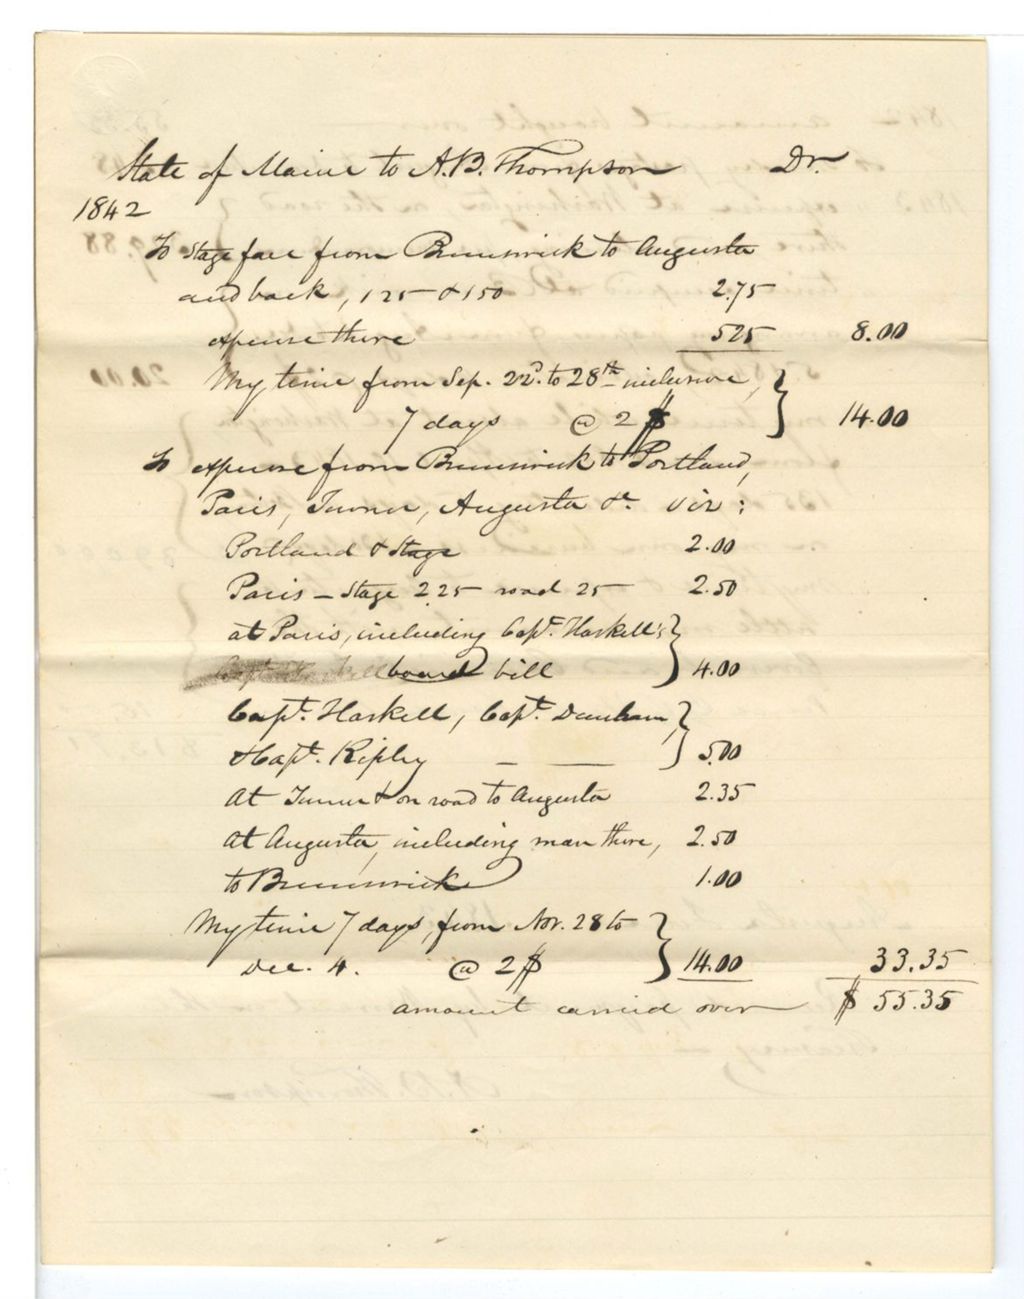 State of Maine to A.B. Thompson Dr.
1842
To Stage fare from Brunswick to Augusta
and back, 125 & 150 2.75
expense there 525 8.00
My time from Sep. 22d. to 28th inclusive,
7 days @ 2 $ 14.00
To expense from Brunswick to Portland,
Paris, Turner, Augusta &c. viz:
Portland & Stage 2.00
Paris – Stage 225 road 25 2.50
at Paris, including Capt. Haskell's
board bill 4.00
Capt. Haskell, Capt. Dunham,
& Capt. Ripley – — 5.00
At Turner & on road to Augusta 2.35
At Augusta, including man there, 2.50
to Brunswick 1.00
My time 7 days, from Nov. 28 to
Dec. 4. @ 2$ 14.00 33.35
amount carried over $ 55.35